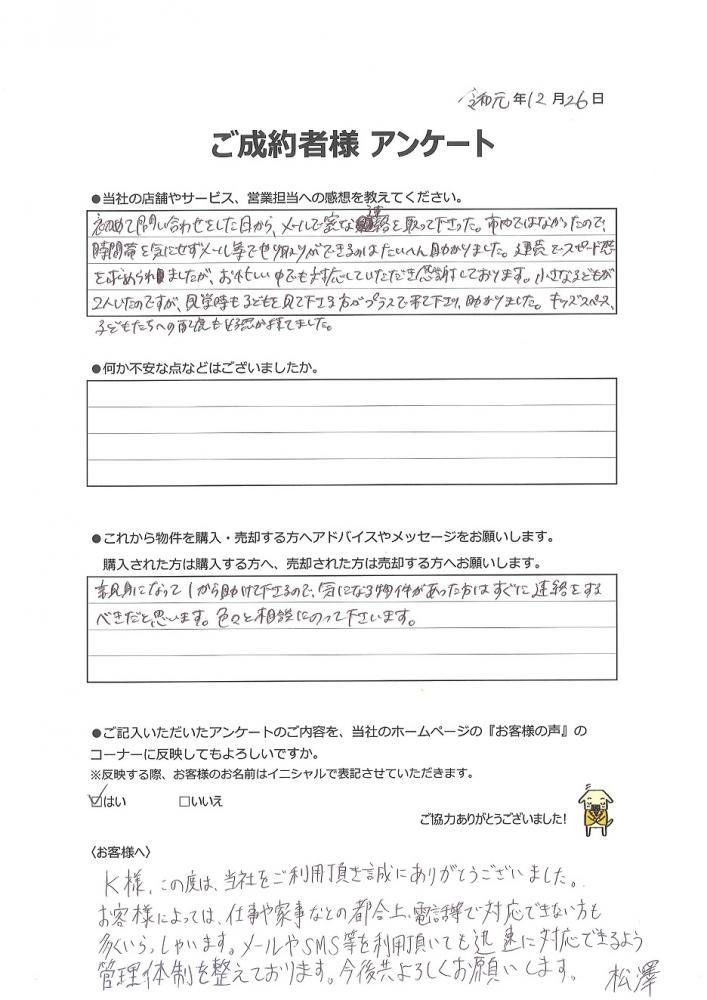 令和元年12月26日
ご成約者様 アンケート
●当社の店舗やサービス、営業担当への感想を教えてください。
初めて問い合わせをした日から、メールで密な連絡を取って下さった。市内ではなかったので、
時間帯を気にせずメール等でやり取りができるのはたいへん助かりました。連続でスピード感
を求められましたが、お忙しい中でも対応していただき感謝しております。小さな子どもが
2人いたのですが、見学時も子どもを見て下さる方がプラスで来て下さり、助かりました。キッズスペース、
子どもたちへの配慮も好感が持てました。
●何か不安な点などはございましたか。
●これから物件を購入・売却する方へアドバイスやメッセージをお願いします。
購入された方は購入する方へ、売却された方は売却する方へお願いします。
親身になって1から助けて下さるので、気になる物件があった方はすぐに連絡をする
べきだと思います。色々と相談にのって下さいます。
●ご記入いただいたアンケートのご内容を、当社のホームページの『お客様の声』の
コーナーに反映してもよろしいですか。
※反映する際、お客様のお名前はイニシャルで表記させていただきます。
☑はい □いいえ
ご協力ありがとうございました!
〈お客様へ〉
K様、この度は、当社をご利用頂き誠にありがとうございました。
お客様によっては、仕事や家事などの都合上、電話等で対応できない方も
多くいらっしゃいます。メールやSMS等を利用頂いても迅速に対応できるよう
管理体制を整えております。今後共よろしくお願いします。 松澤